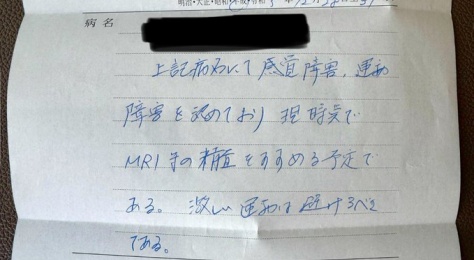 明治・大正・昭和・平成・令和 5 年 12月 28日生
病名
上記病名にて感覚障害、運動
障害を認めており 現時点で
MRI等の精査をすすめる予定で
ある。激しい運動は避けるべき
である。